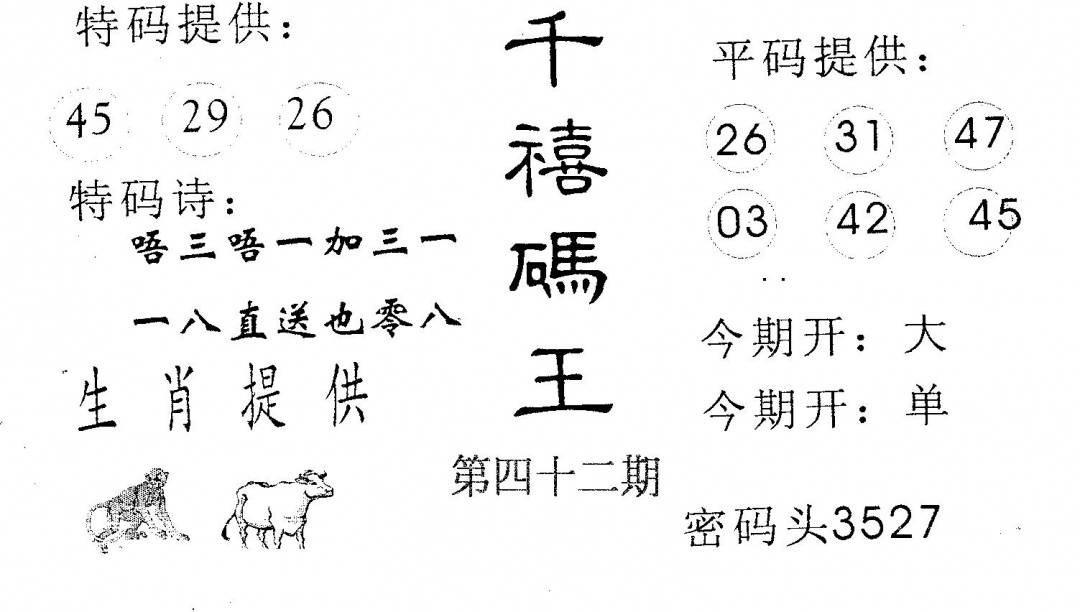 特码提供：
45 29 26
特码诗：
唔三唔一加三一
一八直送也零八
生肖提供
千禧碼王
第四十二期
平码提供：
26 31 47
03 42 45
今期开：大
今期开：单
密码头3527